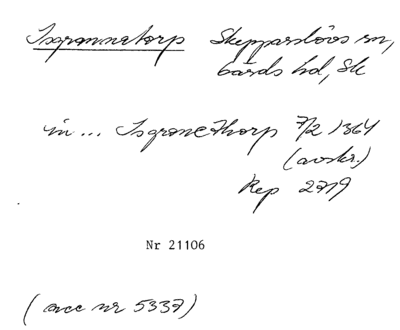 Isgrannatorp Skepparslövs sn,
Gärds hd, Sk
in ... Isgranethorp 7/2 1364
(avskr.)
Rep 2719
Nr 21106
(acc nr 5337)